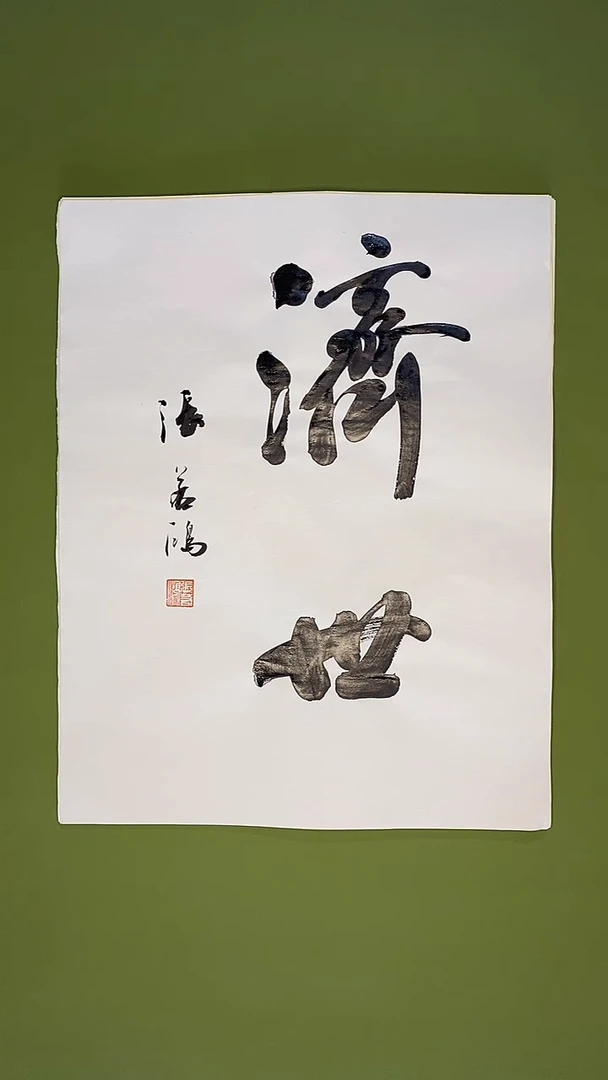 濟世
張若鴻